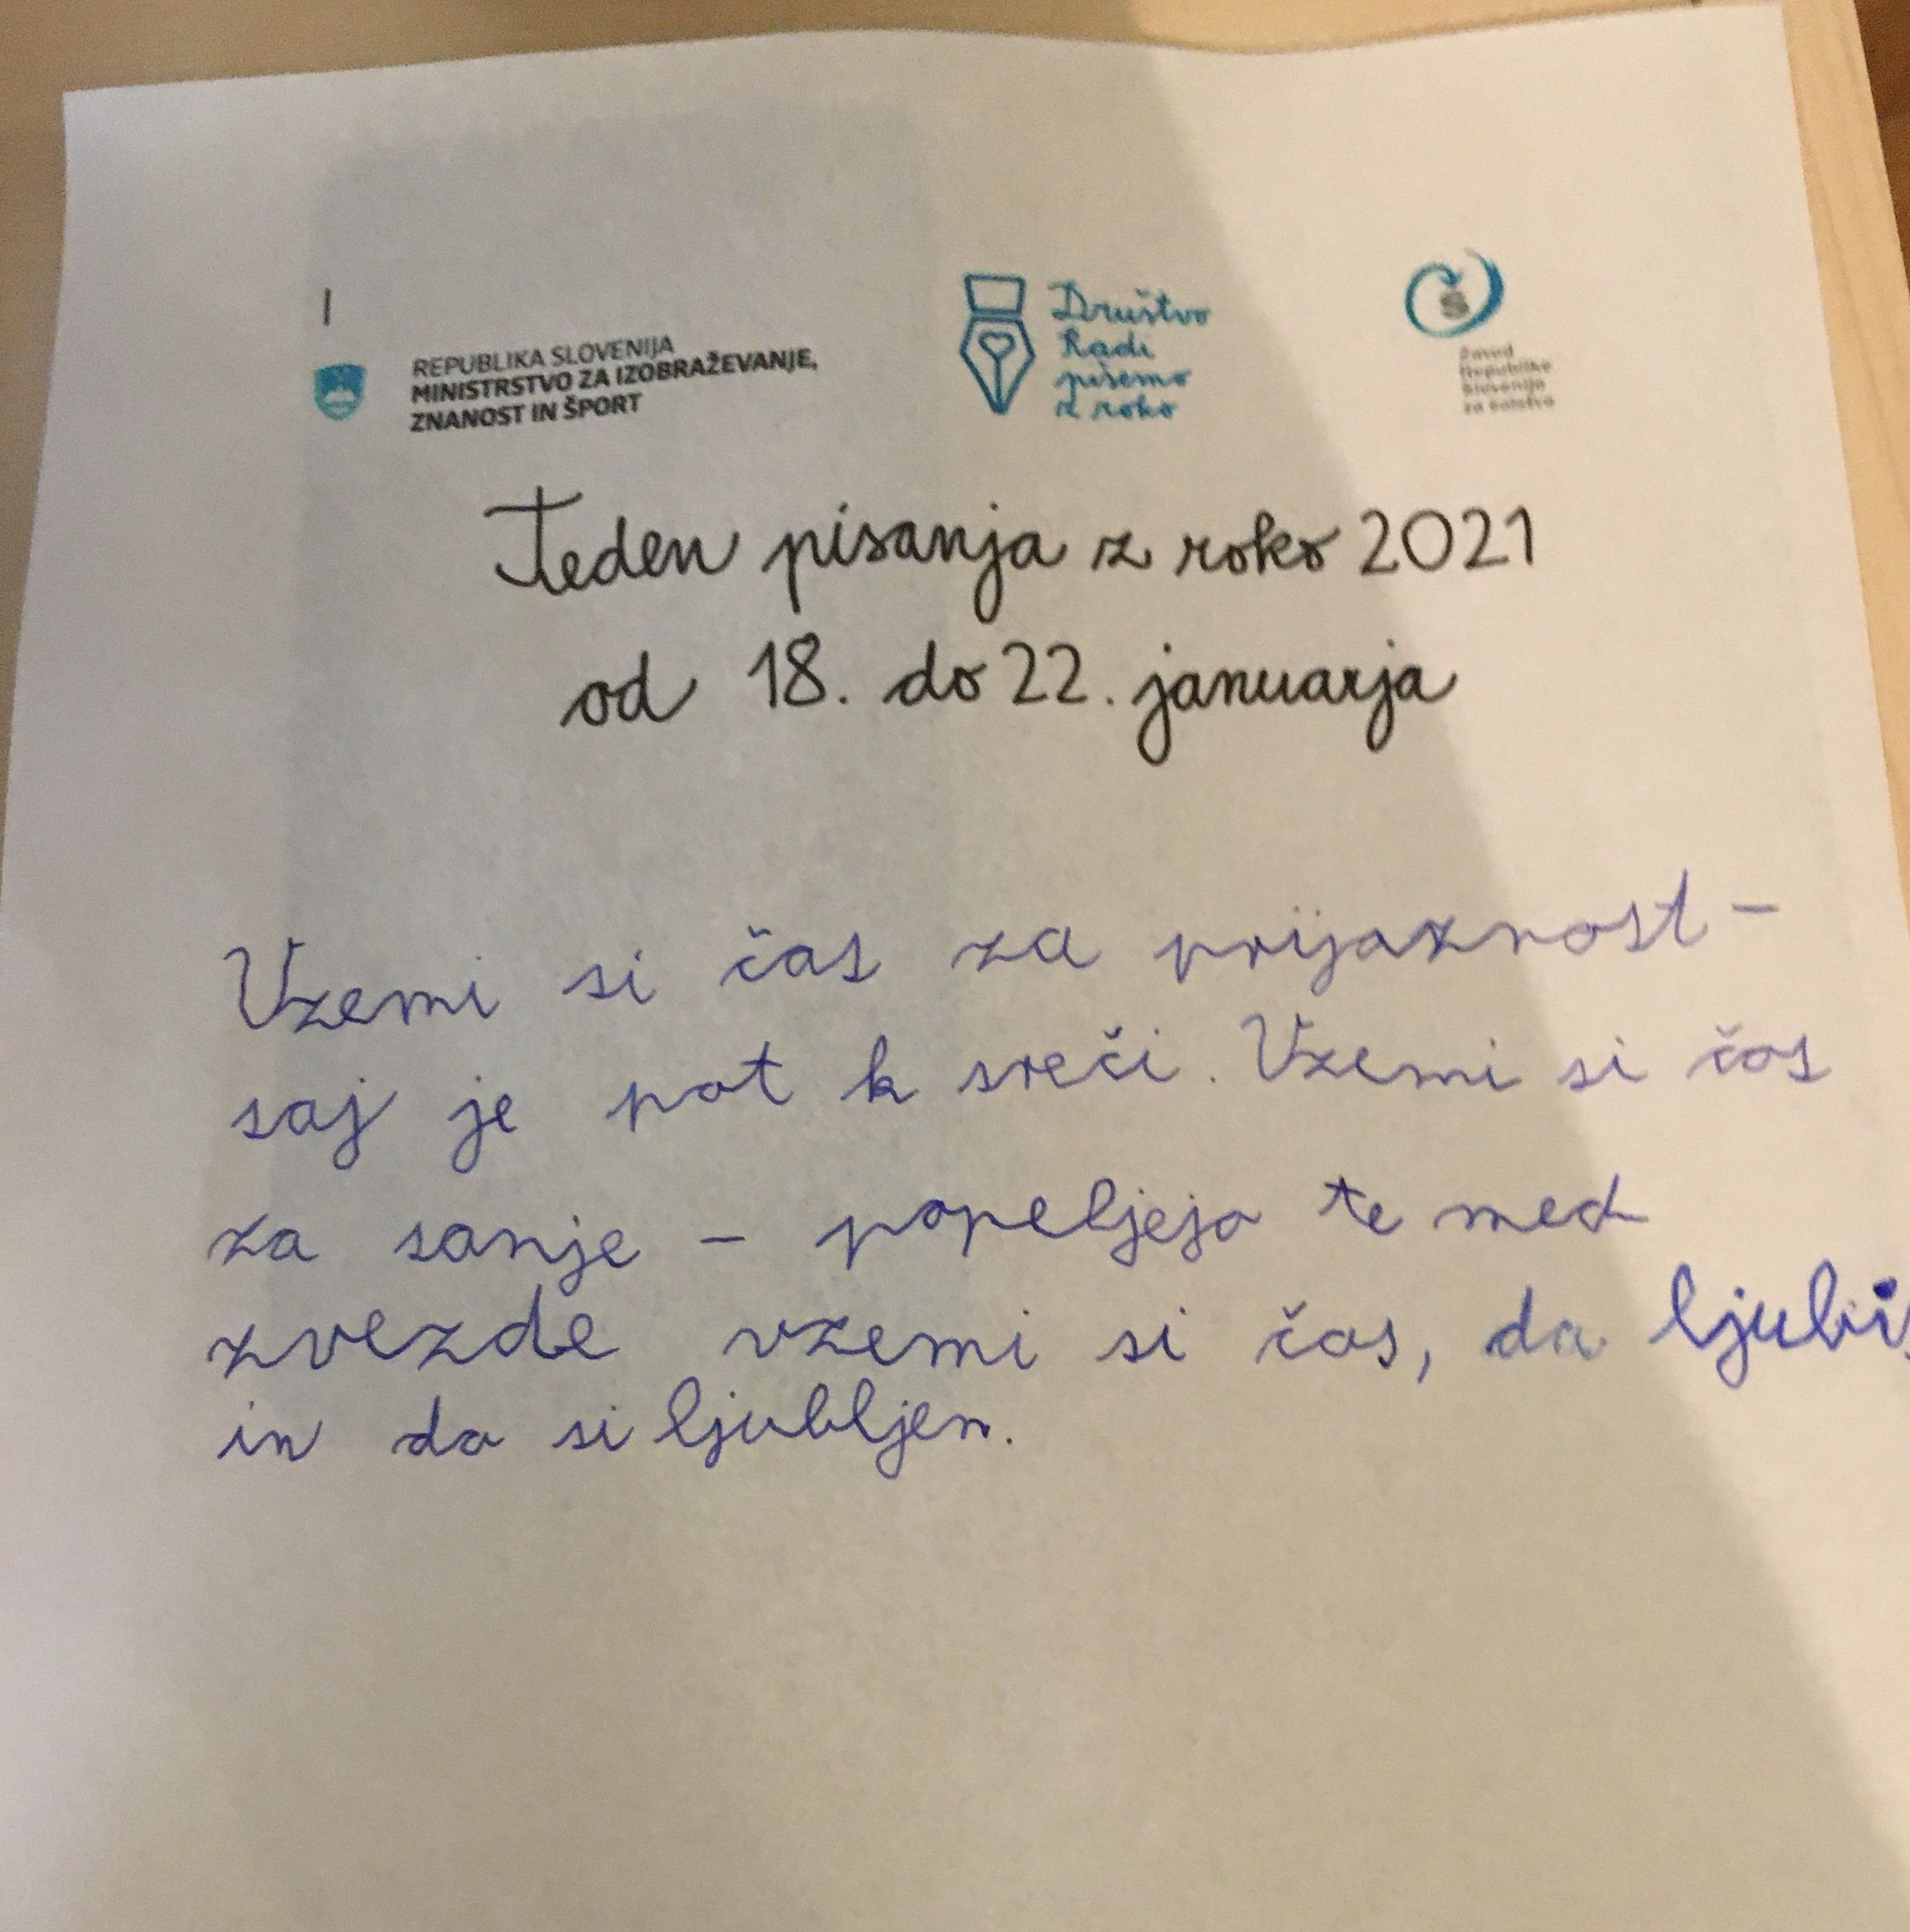 REPUBLIKA SLOVENIJA
MINISTRSTVO ZA IZOBRAŽEVANJE,
ZNANOST IN ŠPORT
Društvo
Radi
pišemo
z roko
Š
Zavod
Republike
Slovenije
za šolstvo
Teden pisanja z roko 2021
od 18. do 22. januarja
Vzemi si čas za prijaznost -
saj je pot k sreči. Vzemi si čas
za sanje - popeljejo te med
zvezde vzemi si čas, da
in da si ljubljen.